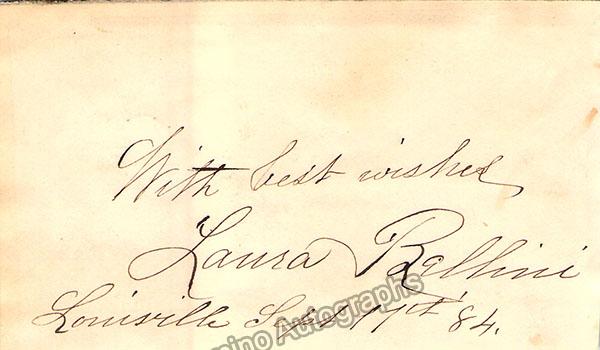 With best wishes
Laura Bellini
Louisville Sept 17th '84.
mino Autographs